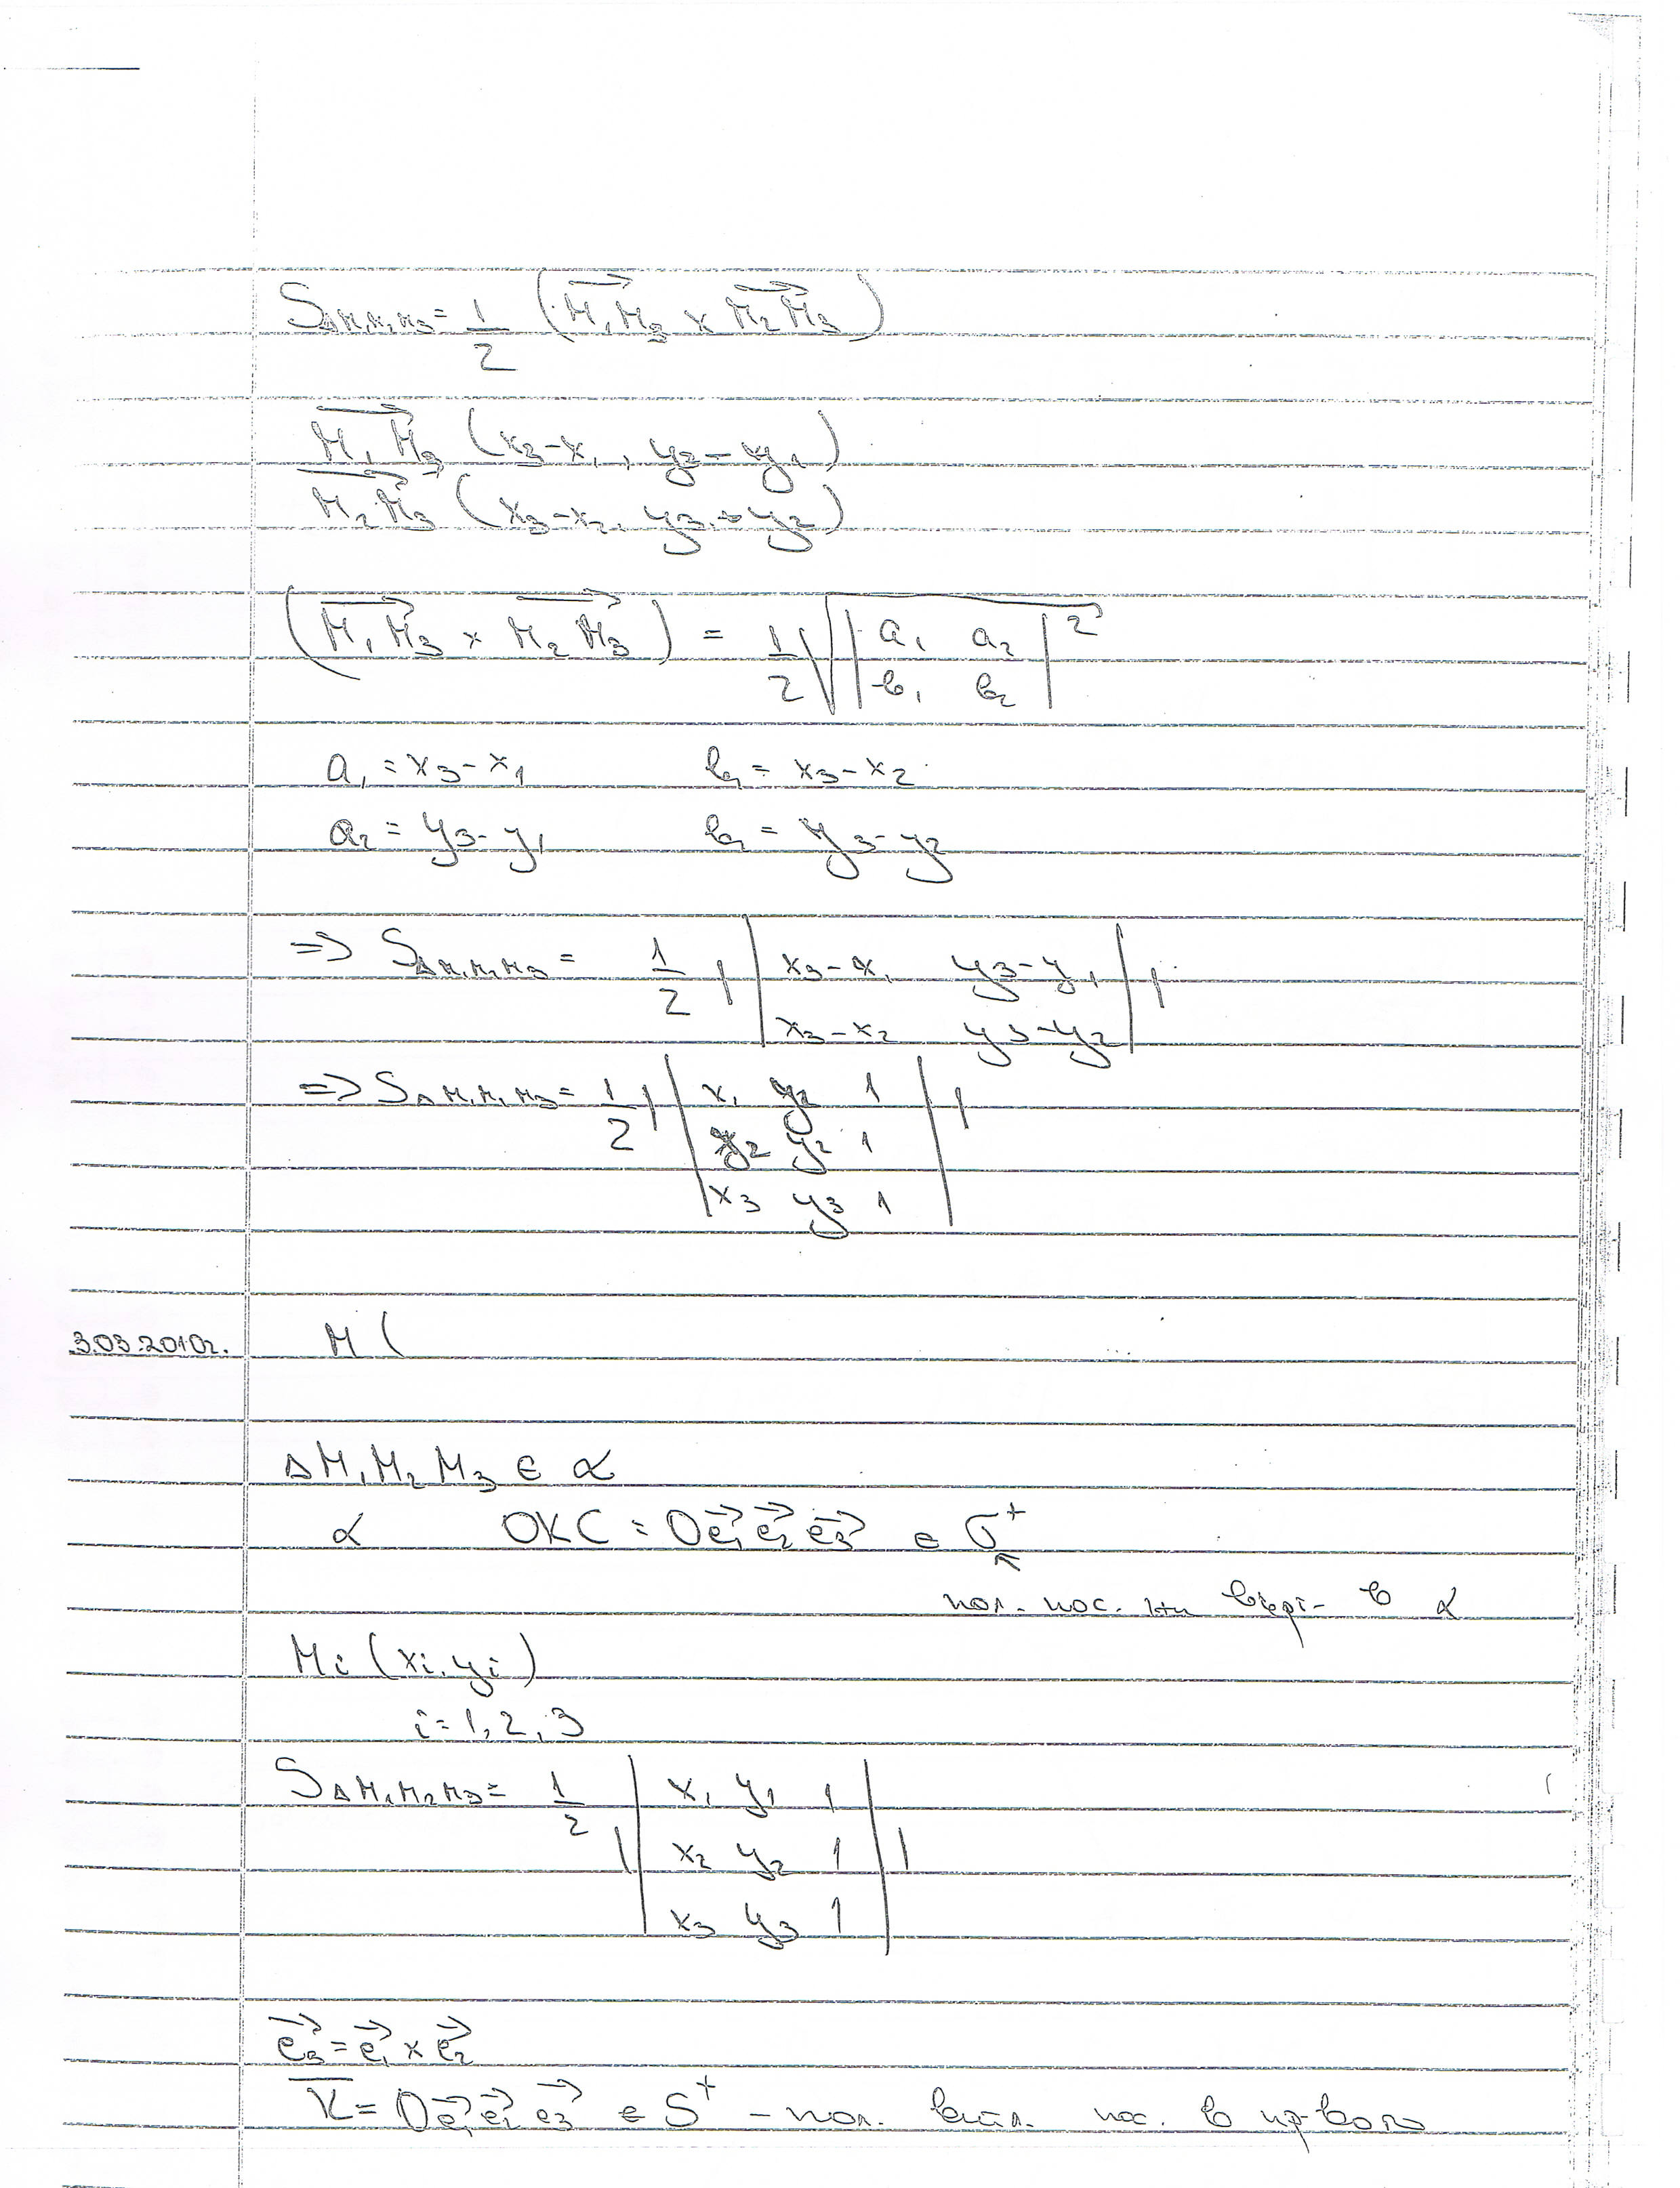 S△M₁M₂M₃ = 1/2 (M₁M₃→ × M₂M₃→)
M₁M₃→ (x₃-x₁, y₃-y₁)
M₂M₃→ (x₃-x₂, y₃-y₂)
(M₁M₃→ × M₂M₃→) = 1/2 √| a₁ a₂ |²
b₁ b₂
a₁ = x₃-x₁ b₁ = x₃-x₂
a₂ = y₃-y₁ b₂ = y₃-y₂
=> S△M₁M₂M₃ = 1/2 | | x₃-x₁ y₃-y₁ | |
x₃-x₂ y₃-y₂
=> S△M₁M₂M₃ = 1/2 | | x₁ y₂ 1 | |
x₂ y₂ 1
x₃ y₃ 1
3.03.2010г. M (
△M₁M₂M₃ ∈ α
α ОКС = Oe₁→e₂→e₃→ ∈ σ⁺
пол. пос. в α
Mi (xi, yi)
i = 1, 2, 3
S△M₁M₂M₃ = 1/2 | | x₁ y₁ 1 | |
x₂ y₂ 1
x₃ y₃ 1
e₃→ = e₁→ × e₂→
K̄ = Oe₁→e₂→e₃→ ∈ S⁺ - пол. пос. в пр-вото